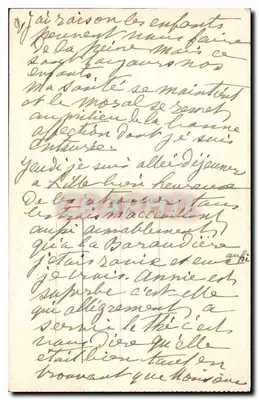 j'ai raison les enfants
peuvent nous faire
de la peine mais ce
sont toujours nos
enfants.
ma santé se maintient
et le moral se remet
au milieu de la bonne
affection dont je suis
entourée.
Jeudi je suis allée déjeuner
à bien heureuse
de les tous
les
aussi aimablement
qu'à la Baraudière
j'étais ravie et eux aussi
je crois. Annie est
superbe c'est elle
qui allégrement a
servi le thé c'est
vous dire qu'elle
était bien tout en
trouvant que